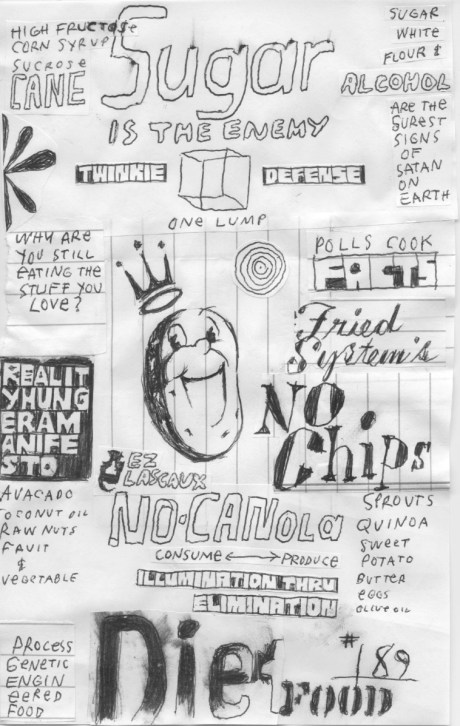 HIGH FRUCTOSE
CORN SYRUP
SUCROSE
CANE
Sugar
IS THE ENEMY
SUGAR
WHITE
FLOUR &
ALCOHOL
ARE THE
SUREST
SIGNS
OF
SATAN
ON
EARTH
TWINKIE
DEFENSE
ONE LUMP
WHY ARE
YOU STILL
EATING THE
STUFF YOU
LOVE?
POLLS COOK
FATS
Fried
System's
NO
Chips
REALIT
YHUNG
ERAM
ANIFE
STO
EZ
LASCAUX
AVACADO
COCONUT OIL
RAW NUTS
FRUIT
&
VEGETABLE
NO-CANOLA
CONSUME ⟷ PRODUCE
ILLUMINATION THRU
ELIMINATION
SPROUTS
QUINOA
SWEET
POTATO
BUTTER
EGGS
OLIVE OIL
PROCESS
GENETIC
ENGIN
EERED
FOOD
Diet
FOOD
#189